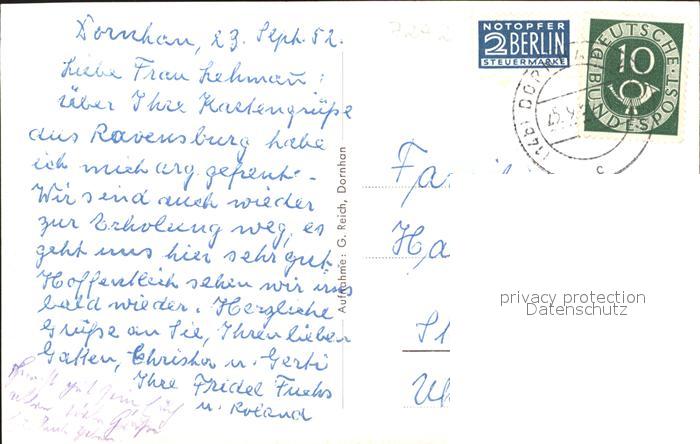 Dornhan, 23. Sept. 52.
Liebe Frau Lehmann!
über Ihre Kartengrüße
aus Ravensburg habe
ich mich arg gefreut. -
Wir sind auch wieder
zur Erholung weg, es
geht uns hier sehr gut.
Hoffentlich sehen wir uns
bald wieder. Herzliche
Grüße an Sie, Ihren lieben
Gatten, Christa u. Gerti
Ihre Fridel Fuchs
u. Roland
Aufnahme: G. Reich, Dornhan
NOTOPFER
2 BERLIN
STEUERMARKE
DEUTSCHE
BUNDESPOST
10
(14b) DORN
c
Fa
Ha
privacy protection
Datenschutz